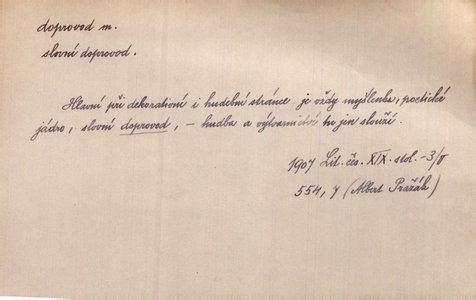 doprovod m.
slovní doprovod.
Hlavní při dekorativní i hudební stránce je vždy myšlenka, poetické
jádro, slovní doprovod, – hudba a výtvarnictví tu jen slouží.
1907 Lit. čes. XIX. stol. – 3/II
554, 7 (Albert Pražák)